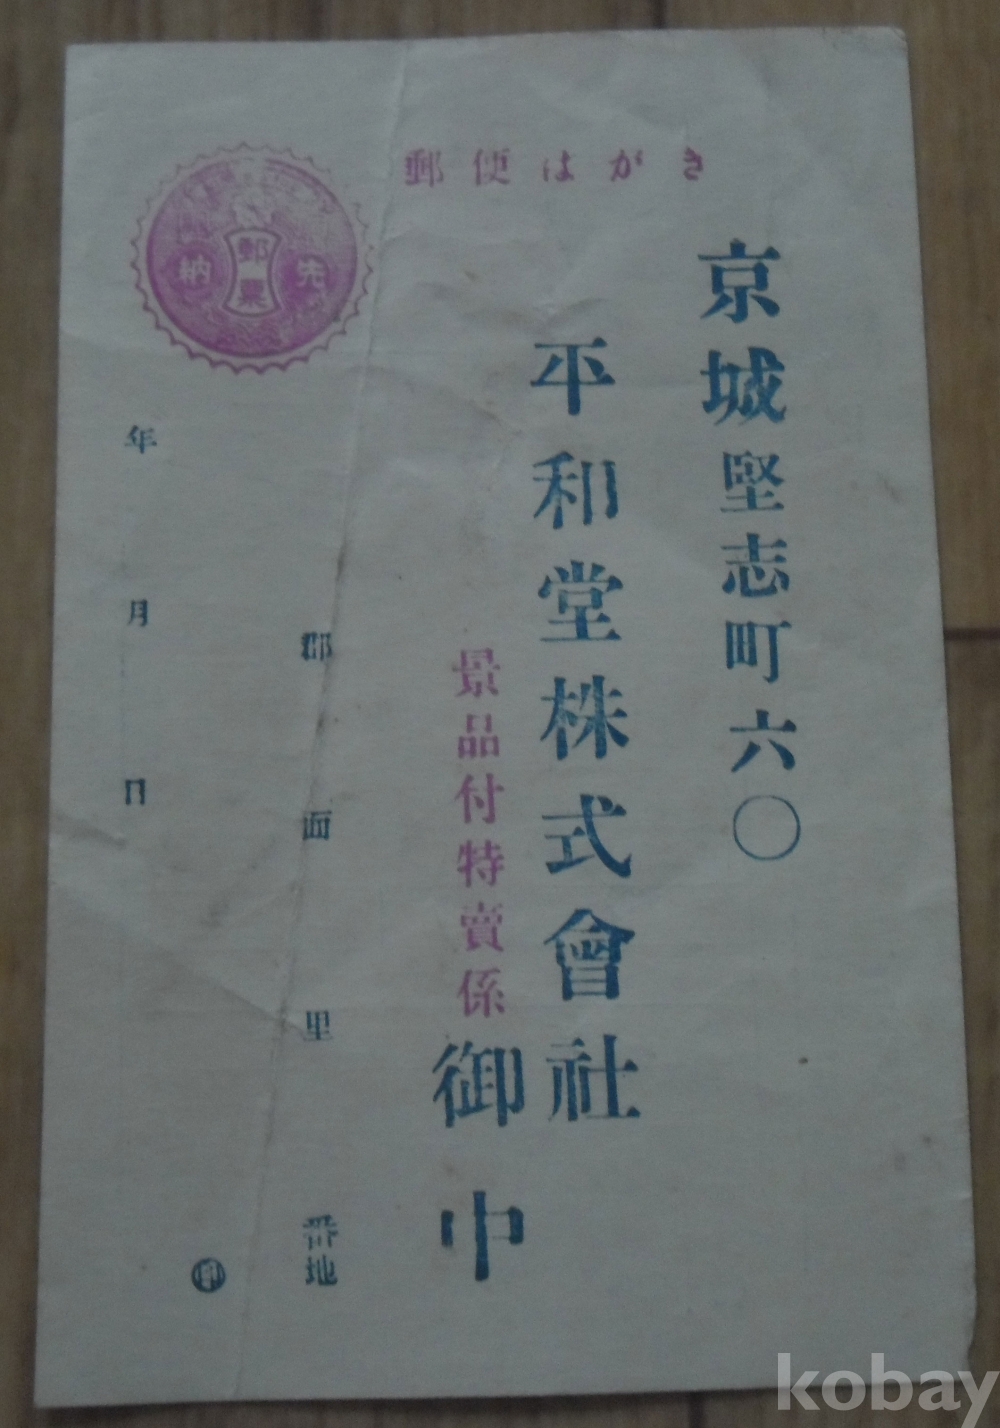 郵便はがき
先納
郵票
京城堅志町六〇
平和堂株式會社
景品付特賣係
御中
郡面里番地
年月日
印
kobay